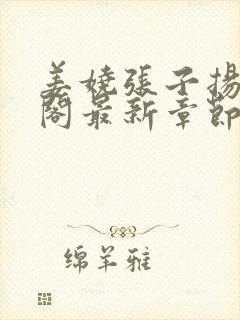 姜娆張子揚
閣最新章節
绵羊雅